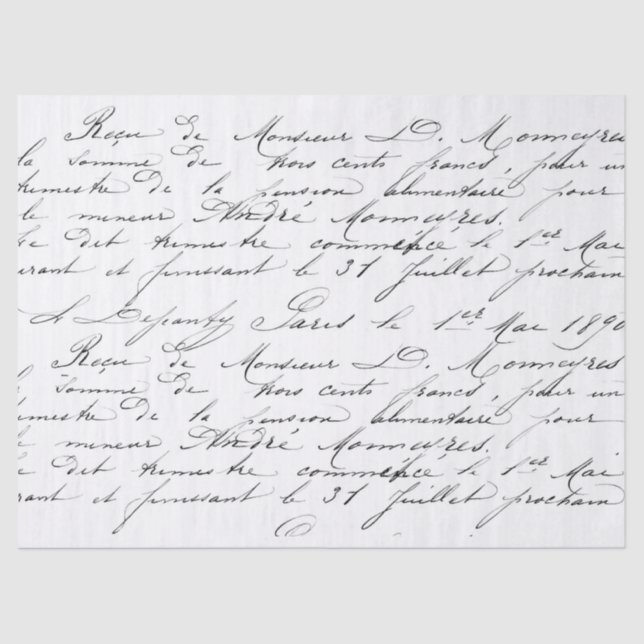 Reçu de Monsieur D. Monneyres
la somme de trois cents francs, pour un
trimestre de la pension alimentaire pour
le mineur André Monneyres.
Le dit trimestre commencé le 1er Mai
urant et finissant le 31 Juillet prochain
Paris le 1er Mai 1890
Reçu de Monsieur D. Monneyres
somme de trois cents francs, pour un
imestre de la pension alimentaire pour
le mineur André Monneyres.
dit trimestre commencé le 1er Mai
rant et finissant le 31 Juillet prochain